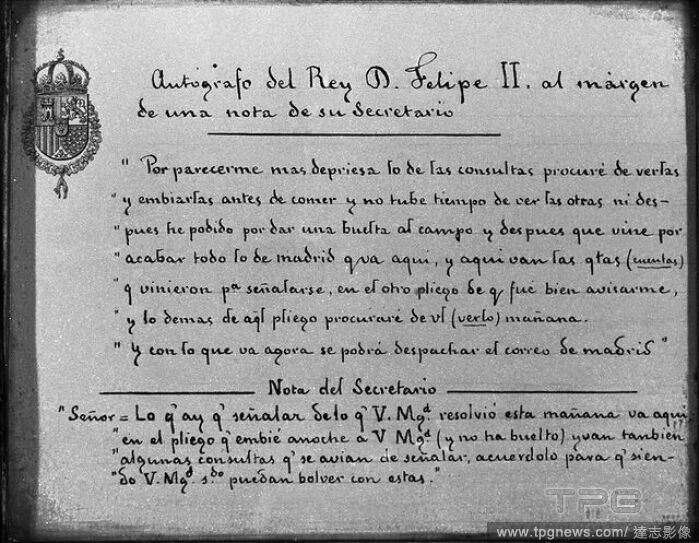 Autógrafo del Rey D. Felipe II. al márgen
de una nota de su Secretario
" Por parecerme mas depriesa lo de las consultas procuré de verlas
" y embiarlas antes de comer y no tube tiempo de ver las otras ni des-
" pues he podido por dar una buelta al campo y despues que vine por
" acabar todo lo de madrid q va aqui, y aqui van las qtas (cuentas)
" q vinieron pª señalarse, en el otro pliego de q fué bien avisarme,
" y lo demas de aql pliego procuraré de vl (verlo) mañana.
" y con lo que va agora se podrá despachar el correo de madrid "
Nota del Secretario
" Señor = Lo q' ay q' señalar de lo q' V. Mgd. resolvió esta mañana va aqui
" en el pliego q' embié anoche á V Mgd (y no ha buelto) y van tanbien
" algunas consultas q' se avian de señalar, acuerdolo para q' sien-
" do V. Mgd. s.do puedan bolver con estas."
TPG
www.tpgnews.com/達志影像